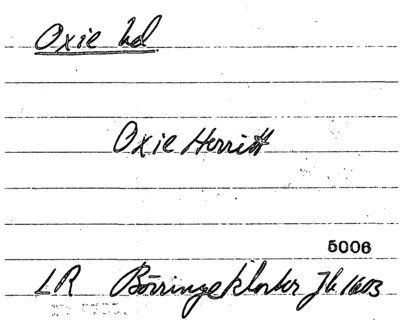 Oxie hd
Oxie Herritt
5006
LR Börringekloster Jb 1603